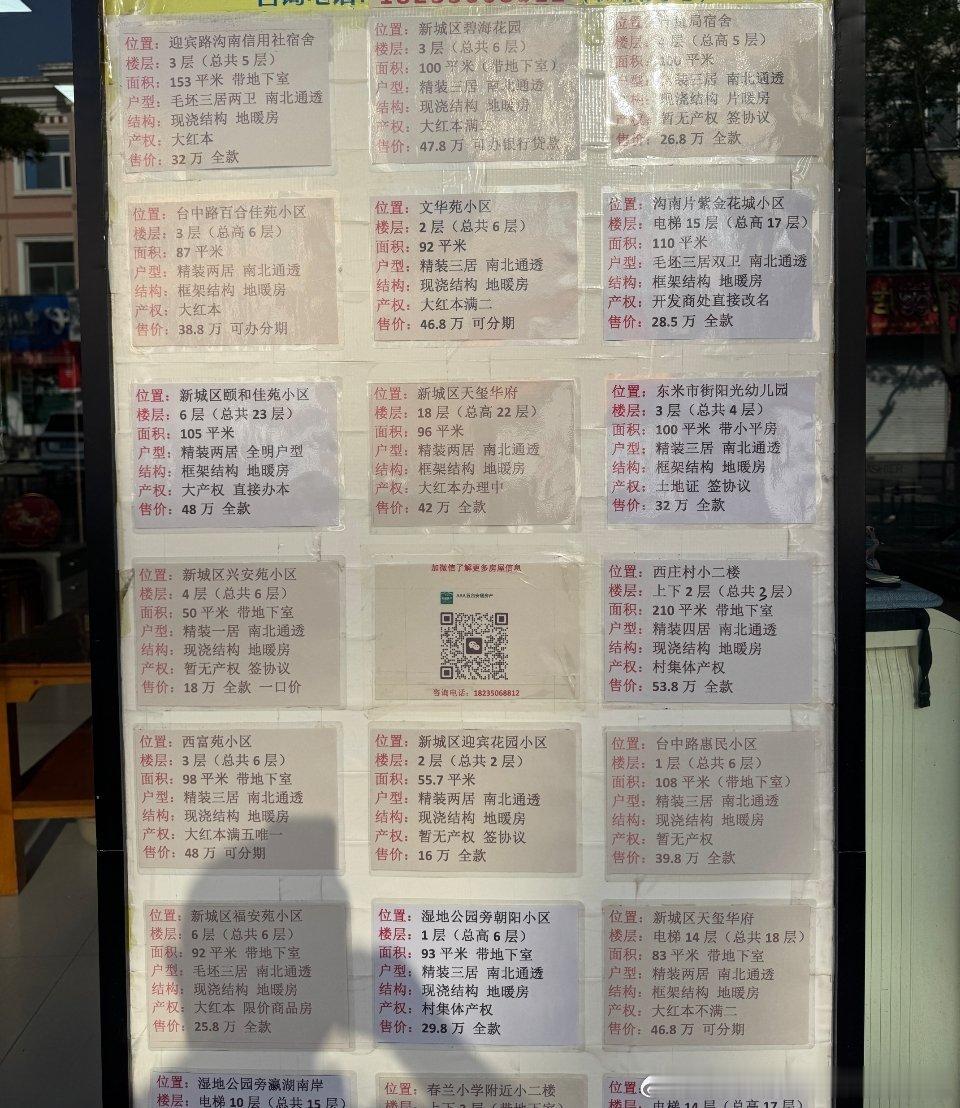 位置：迎宾路沟南信用社宿舍
楼层：3 层（总共 5 层）
面积：153 平米 带地下室
户型：毛坯三居两卫 南北通透
结构：现浇结构 地暖房
产权：大红本
售价：32 万 全款
位置：新城区碧海花园
楼层：3 层（总共 6 层）
面积：100 平米（带地下室）
户型：精装三居 南北通透
结构：现浇结构 地暖房
产权：大红本满二
售价：47.8 万 可办银行贷款
局宿舍
层（总高 5 层）
平米
三居 南北通透
现浇结构 片暖房
产权：暂无产权 签协议
售价：26.8 万 全款
位置：台中路百合佳苑小区
楼层：3 层（总高 6 层）
面积：87 平米
户型：精装两居 南北通透
结构：框架结构 地暖房
产权：大红本
售价：38.8 万 可办分期
位置：文华苑小区
楼层：2 层（总共 6 层）
面积：92 平米
户型：精装三居 南北通透
结构：现浇结构 地暖房
产权：大红本满二
售价：46.8 万 可分期
位置：沟南片紫金花城小区
楼层：电梯 15 层（总高 17 层）
面积：110 平米
户型：毛坯三居双卫 南北通透
结构：框架结构 地暖房
产权：开发商处直接改名
售价：28.5 万 全款
位置：新城区颐和佳苑小区
楼层：6 层（总共 23 层）
面积：105 平米
户型：精装两居 全明户型
结构：框架结构 地暖房
产权：大产权 直接办本
售价：48 万 全款
位置：新城区天玺华府
楼层：18 层（总高 22 层）
面积：96 平米
户型：精装两居 南北通透
结构：框架结构 地暖房
产权：大红本办理中
售价：42 万 全款
位置：东米市街阳光幼儿园
楼层：3 层（总共 4 层）
面积：100 平米 带小平房
户型：精装三居 南北通透
结构：框架结构 地暖房
产权：土地证 签协议
售价：32 万 全款
位置：新城区兴安苑小区
楼层：4 层（总共 6 层）
面积：50 平米 带地下室
户型：精装一居 南北通透
结构：现浇结构 地暖房
产权：暂无产权 签协议
售价：18 万 全款 一口价
加微信了解更多房屋信息
咨询电话：18235068812
位置：西庄村小二楼
楼层：上下 2 层（总共 2 层）
面积：210 平米 带地下室
户型：精装四居 南北通透
结构：现浇结构 地暖房
产权：村集体产权
售价：53.8 万 全款
位置：西富苑小区
楼层：3 层（总共 6 层）
面积：98 平米 带地下室
户型：精装三居 南北通透
结构：现浇结构 地暖房
产权：大红本满五唯一
售价：48 万 可分期
位置：新城区迎宾花园小区
楼层：2 层（总共 2 层）
面积：55.7 平米
户型：精装两居 南北通透
结构：现浇结构 地暖房
产权：暂无产权 签协议
售价：16 万 全款
位置：台中路惠民小区
楼层：1 层（总共 6 层）
面积：108 平米（带地下室）
户型：精装三居 南北通透
结构：现浇结构 地暖房
产权：暂无产权
售价：39.8 万 全款
位置：新城区福安苑小区
楼层：6 层（总共 6 层）
面积：92 平米 带地下室
户型：毛坯三居 南北通透
结构：现浇结构 地暖房
产权：大红本 限价商品房
售价：25.8 万 全款
位置：湿地公园旁朝阳小区
楼层：1 层（总高 6 层）
面积：93 平米 带地下室
户型：精装三居 南北通透
结构：现浇结构 地暖房
产权：村集体产权
售价：29.8 万 全款
位置：新城区天玺华府
楼层：电梯 14 层（总共 18 层）
面积：83 平米 带地下室
户型：精装两居 南北通透
结构：框架结构 地暖房
产权：大红本不满二
售价：46.8 万 可分期
位置：湿地公园旁瀛湖南岸
楼层：电梯 10 层（总共 15 层）
位置：春兰小学附近小二楼
位置：
电梯 14 层（总高 17 层）